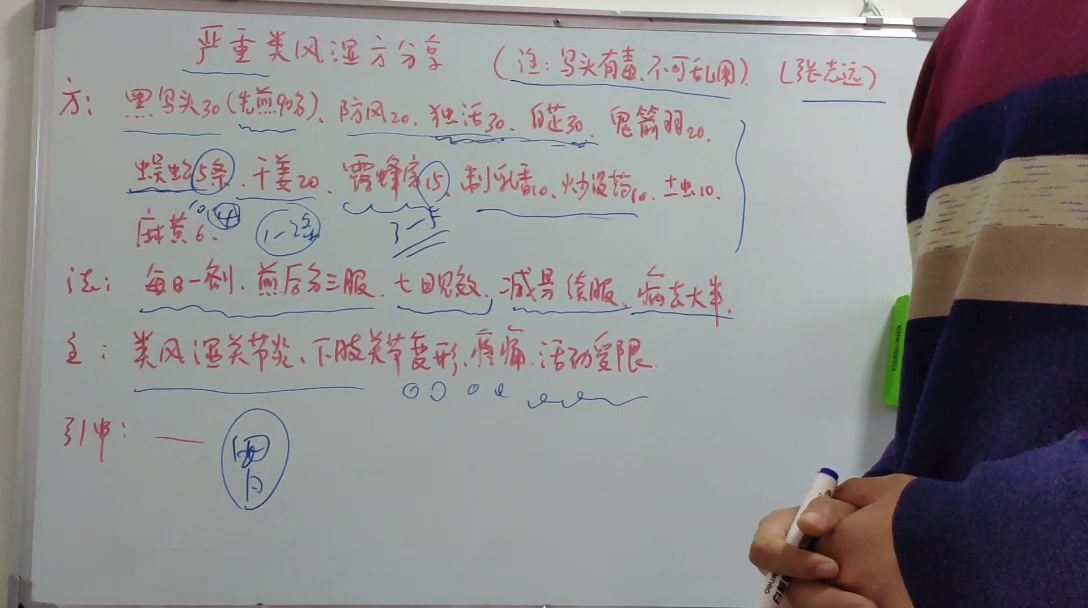 严重类风湿方分享 (注:乌头有毒,不可乱用) (张志远)
方: 黑乌头30(先煎90分)、防风20、独活30、白芷30、鬼箭羽20、
蜈蚣5条、干姜20、露蜂房15、制乳香10、炒没药10、土虫10、
麻黄6、 10 4 1-2条 3-5
法: 每日一剂、煎后分三服、七日见效、减量续服、病去大半.
主: 类风湿关节炎、下肢关节变形、疼痛、活动受限
引申: — 胃